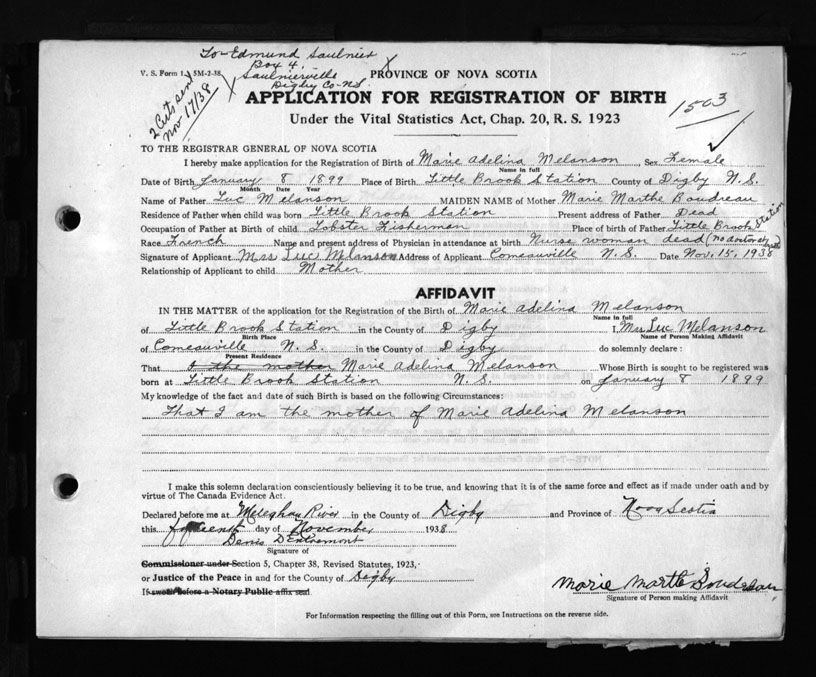 To Edmund Saulnier
Box 4.
V. S. Form 1. 5M-2-38 Saulnierville PROVINCE OF NOVA SCOTIA
Digby Co. N.S.
2 Certs sent
Nov 17/38
APPLICATION FOR REGISTRATION OF BIRTH
1503
Under the Vital Statistics Act, Chap. 20, R. S. 1923
TO THE REGISTRAR GENERAL OF NOVA SCOTIA
I hereby make application for the Registration of Birth of Marie Adelina Melanson Sex Female
Name in full
Date of Birth January 8 1899 Place of Birth Little Brook Station County of Digby N.S.
Month Date Year
Name of Father Luc Melanson MAIDEN NAME of Mother Marie Marthe Boudreau
Residence of Father when child was born Little Brook Station Present address of Father Dead
Occupation of Father at Birth of child Lobster Fisherman Place of birth of Father Little Brook Station
Race French Name and present address of Physician in attendance at birth Nurse woman dead (no doctor
Signature of Applicant Mrs Luc Melanson Address of Applicant Comeauville N.S. Date Nov. 15, 1938
Relationship of Applicant to child Mother
AFFIDAVIT
IN THE MATTER of the application for the Registration of the Birth of Marie Adelina Melanson
Name in full
of Little Brook Station in the County of Digby I, Mrs Luc Melanson
Birth Place Name of Person Making Affidavit
of Comeauville N.S. in the County of Digby do solemnly declare :
Present Residence
That I the mother Marie Adelina Melanson Whose Birth is sought to be registered was
born at Little Brook Station N.S. on January 8 1899
My knowledge of the fact and date of such Birth is based on the following Circumstances:
That I am the mother of Marie Adelina Melanson
I make this solemn declaration conscientiously believing it to be true, and knowing that it is of the same force and effect as if made under oath and by
virtue of The Canada Evidence Act.
Declared before me at Meteghan River in the County of Digby and Province of Nova Scotia
this fifteenth day of November 1938
Denis D'Entremont
Signature of
Commissioner under Section 5, Chapter 38, Revised Statutes, 1923,
or Justice of the Peace in and for the County of Digby
If sworn before a Notary Public affix seal
Marie Marthe Boudreau
Signature of Person making Affidavit
For Information respecting the filling out of this Form, see Instructions on the reverse side.